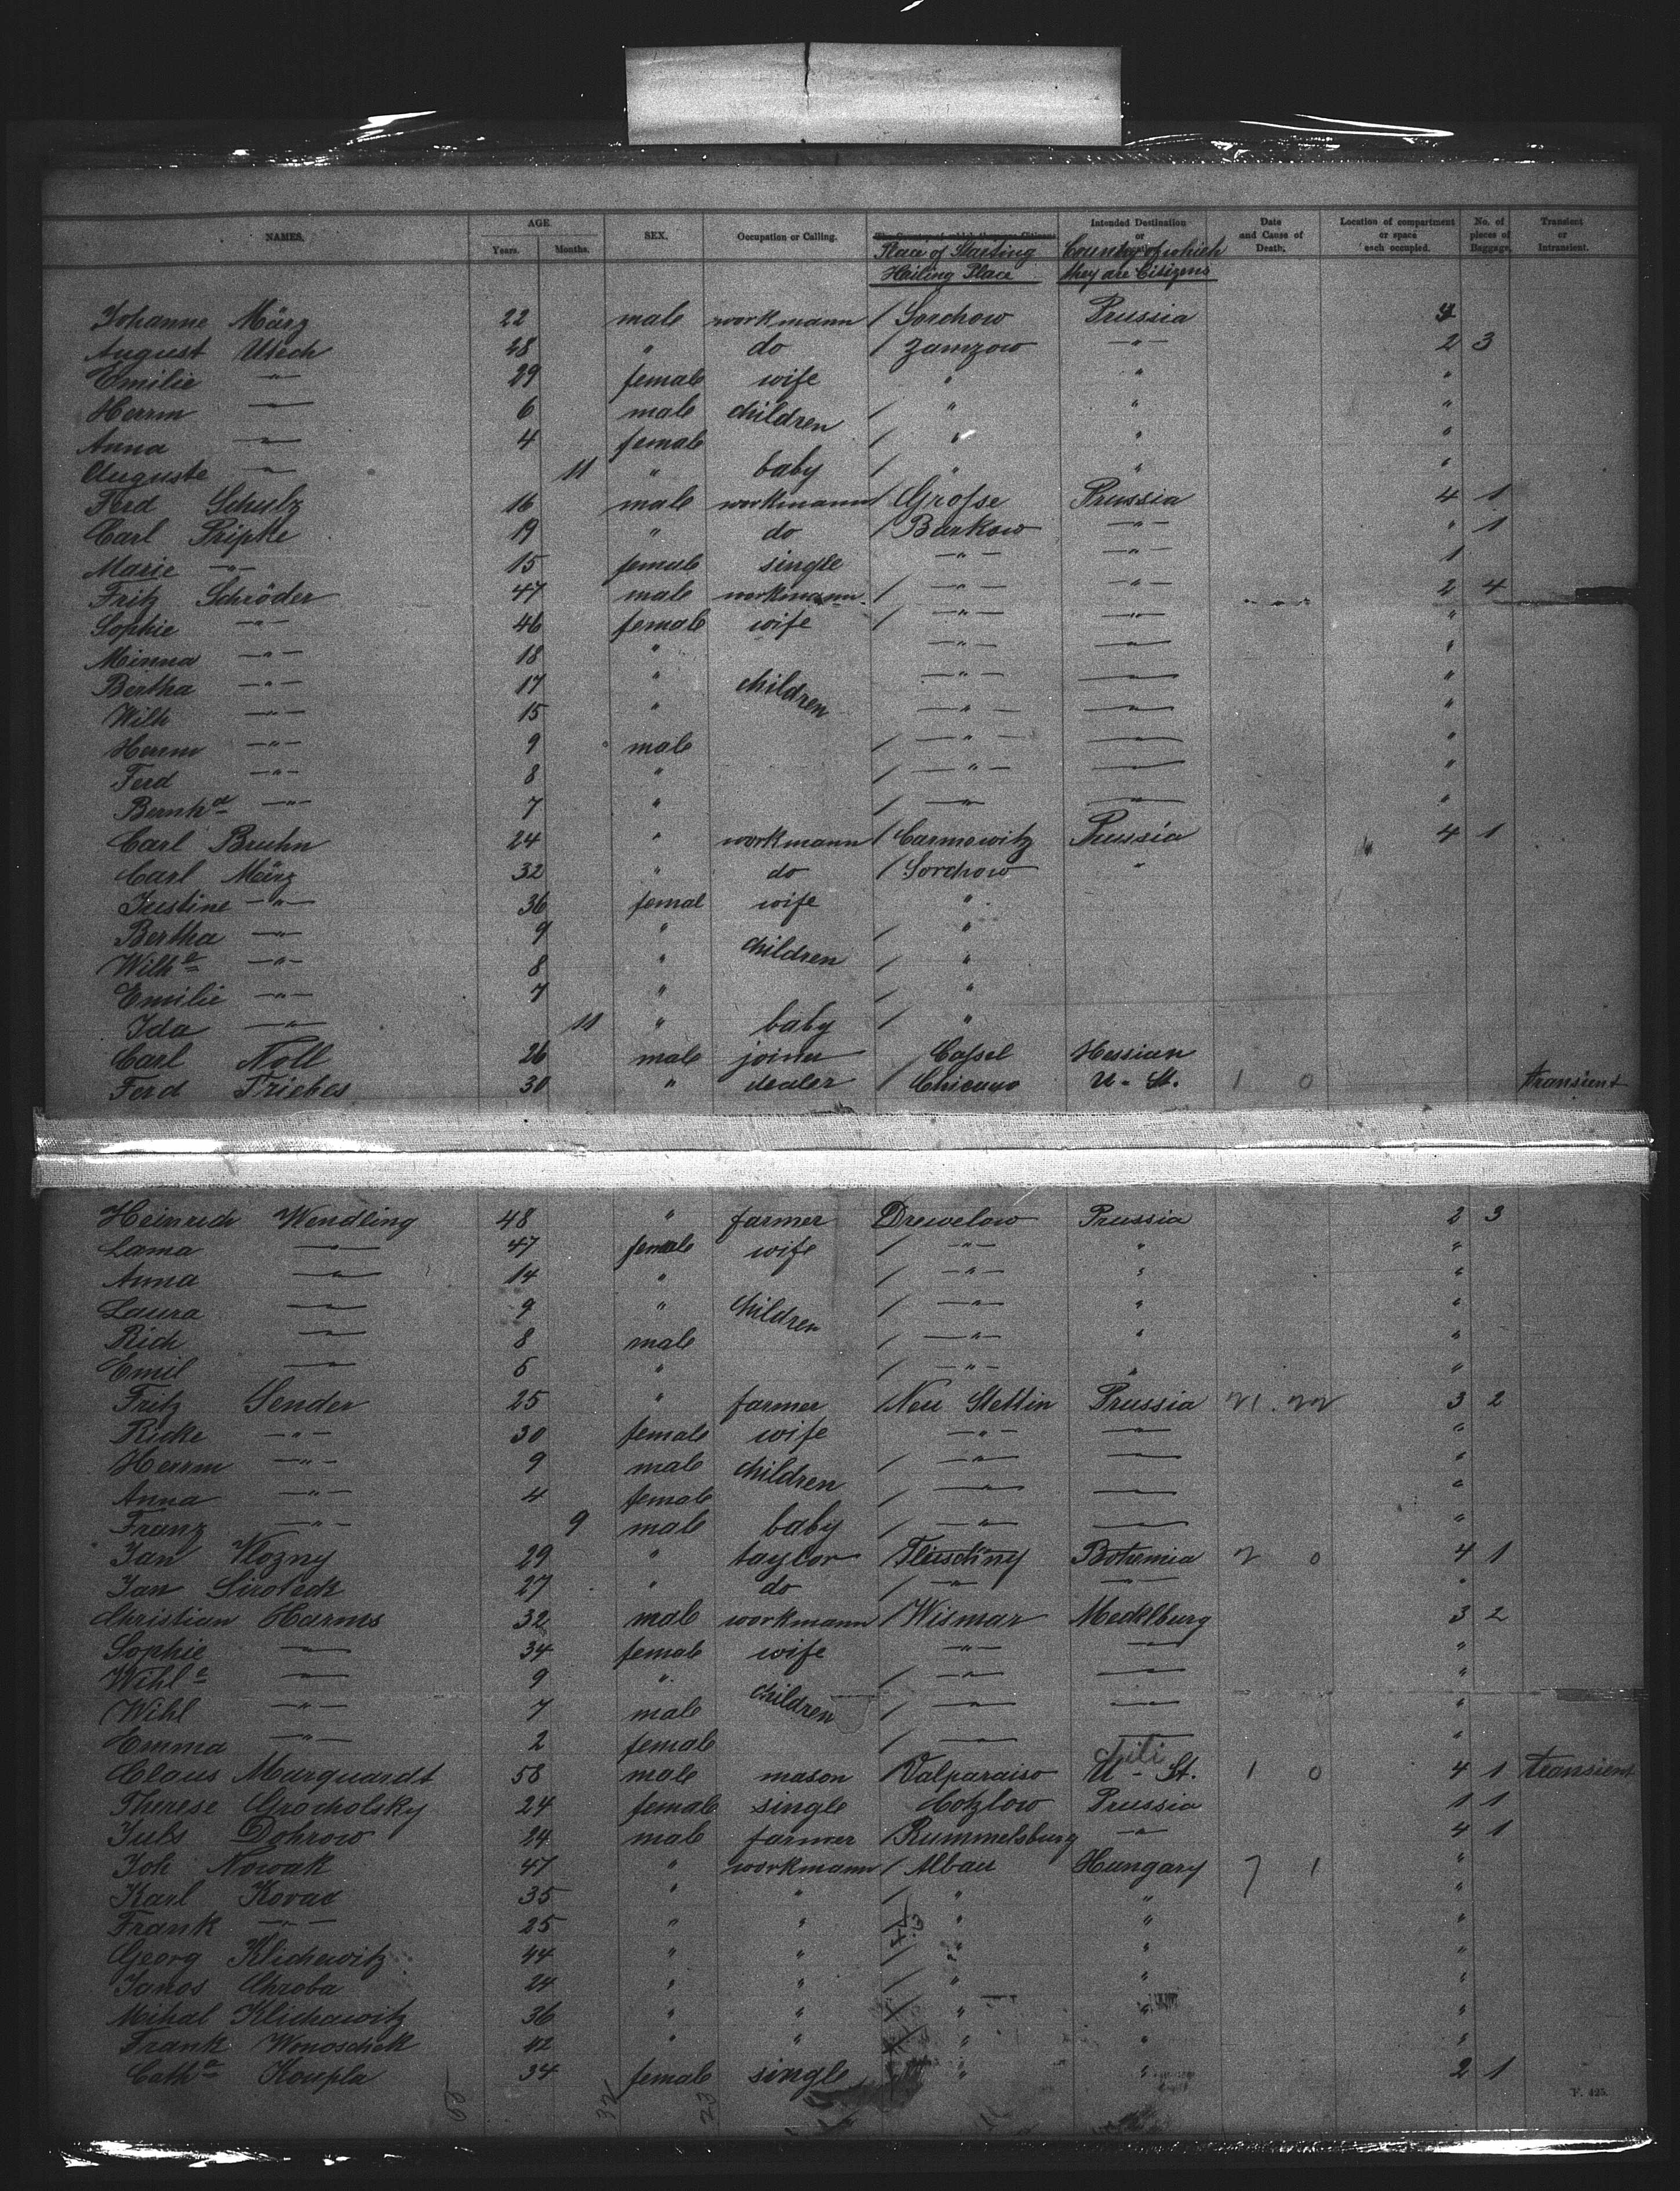 NAMES. AGE Years. Months. SEX. Occupation or Calling. Place of Starting Hailing Place Intended Destination or Country of which they are Citizens Date and Cause of Death. Location of compartment or space each occupied. No. of pieces of Baggage. Transient or Intransient.
Johanne März 22 male workmann / Sorchow Prussia 4
August Utech 28 " do / Zamzow —"— 2 3
Emilie —"— 29 female wife " " "
Herrm —"— 6 male children / " " "
Anna —"— 4 female / " " "
Auguste —"— 11 " baby / " " "
Ferd Schulz 16 male workmann / Grosse Prussia 4 1
Carl Pripke 19 " do / Barkow —"— " 1
Marie —"— 15 female single —"— —"— 1
Fritz Schröder 47 male workmann / —"— —"— 2 4
Sophie —"— 46 female wife / —"— —"— "
Minna —"— 18 " —"— —"— "
Bertha —"— 17 " children —"— —"— "
Wilh —"— 15 " —"— —"— "
Herrm —"— 9 male / —"— —"— "
Ferd —"— 8 " / —"— —"— "
Bernhd —"— 7 " / —"— —"— "
Carl Bruhn 24 " workmann / Carmowitz Prussia 4 1
Carl März 32 " do / Sorchow "
Justine —"— 36 femal wife "
Bertha —"— 9 " children / "
Wilhe —"— 8 " / "
Emilie —"— 7 " / "
Ida —"— 11 " baby / "
Carl Noll 26 male joiner Cassel Hessian
Ferd Triebes 30 " dealer / Chicago U. St. 1 0 transient
Heinrich Wendling 48 " farmer Drewelow Prussia 2 3
Lama —"— 47 female wife / —"— " "
Anna —"— 14 " / —"— " "
Laura —"— 9 " children / —"— " "
Rich —"— 8 male / —"— " "
Emil —"— 5 " / —"— " "
Fritz Sender 25 " farmer / Neu Stettin Prussia 21.22 3 2
Ricke —"— 30 female wife —"— —"— "
Herrm —"— 9 male children / —"— —"— "
Anna —"— 4 female / —"— —"— "
Franz —"— 9 male baby / —"— —"— "
Jan Vlozny 29 " taylor / Bohemia 2 0 4 1
Jan 27 " do / —"— —"— "
Christian Harms 32 male workmann / Wismar Mecklburg 3 2
Sophie —"— 34 female wife —"— —"— "
Wihle —"— 9 " children / —"— —"— "
Wihl —"— 7 male / —"— —"— "
Emma —"— 2 female / —"— —"— "
Claus Marquardt 58 male mason / Valparaiso Chili U - St. 1 0 4 1 transient
Therese Grocholsky 24 female single Cotzlow Prussia 1 1
Juls Dohrow 24 male farmer / Rummelsburg —"— 4 1
Joh Nowak 47 " workmann / Albau Hungary 7 1 "
Karl Kovac 35 " " / " " "
Frank —"— 25 " " / " " "
Georg Klichewitz 44 " " / " " "
Janos Chroba 24 " " / " " "
Mihal Klichawitz 36 " " / " " "
Frank Wonoschek 42 " " / " " "
Cathe Koupla 34 female single " " 2 1
32 23
F. 425.